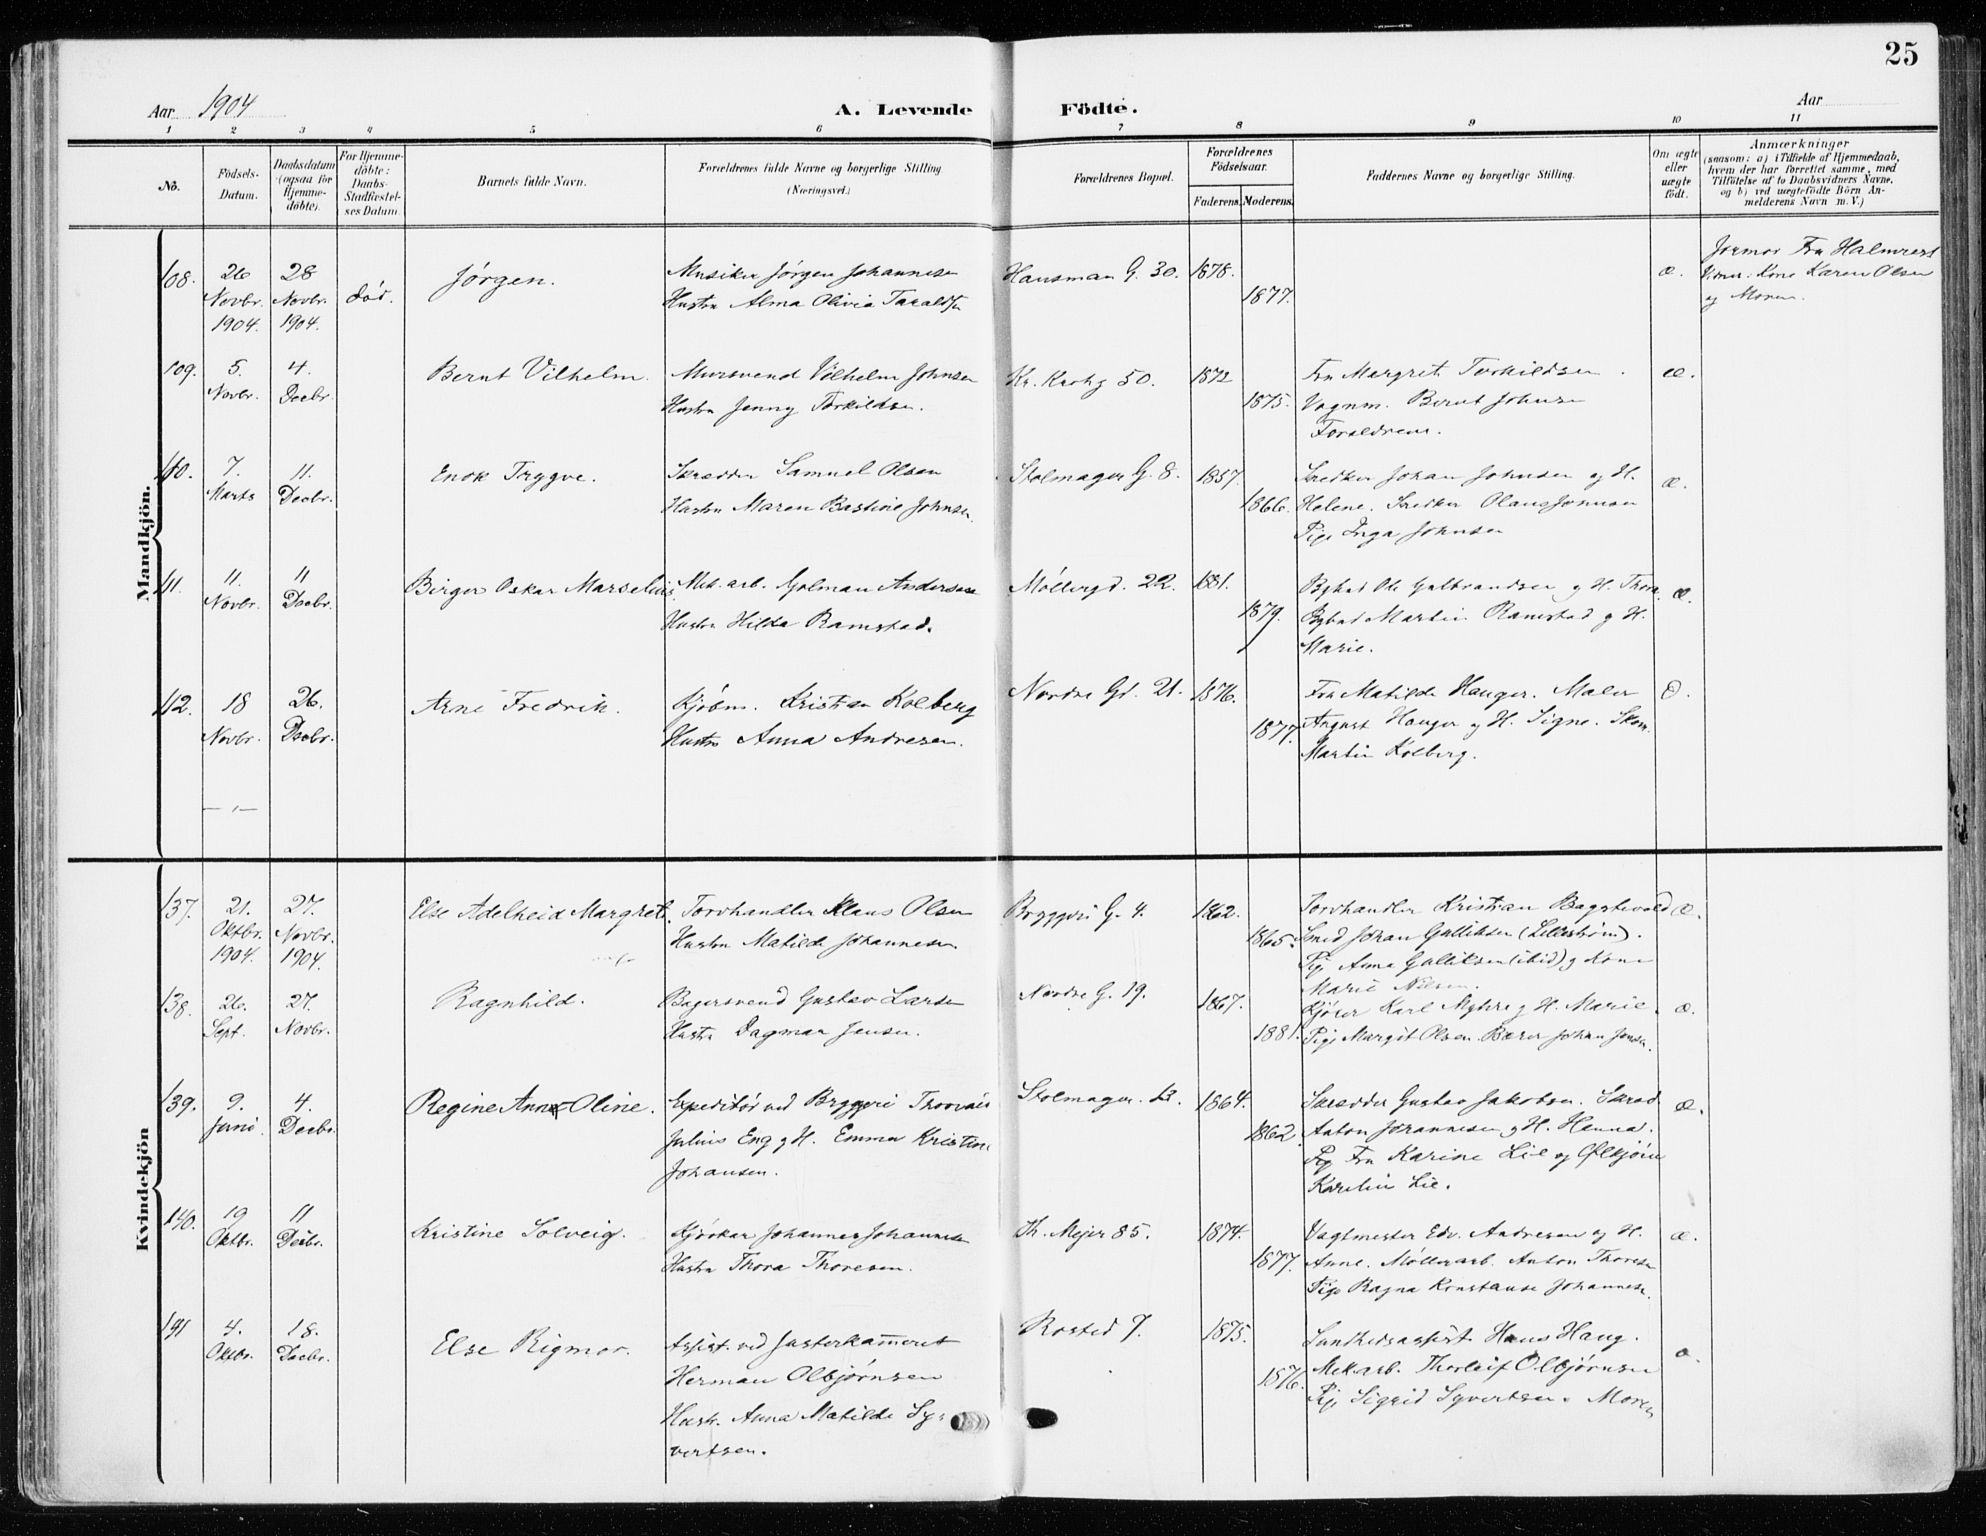 25
Aar 1904
A. Levende Födte.
Aar
1 2 3 4 5 6 7 8 9 10 11
No.
Födsels-Datum.
Daabsdatum (ogsaa for Hjemme-döbte).
For Hjemme-döbte: Daabs-Stadfæstel-ses Datum.
Barnets fulde Navn.
Forældrenes fulde Navne og borgerlige Stilling (Næringsvei.)
Forældrenes Bopæl.
Forældrenes Födselsaar.
Faderens. Moderens.
Faddernes Navne og borgerlige Stilling.
Om ægte eller uægte födt.
Anmærkninger
(saasom: a) i Tilfælde af Hjemmedaab, hvem der har forrettet samme, med Tilföielse af to Daabsvidners Navne, og b) ved uægtefödte Börn Anmelderens Navn m. V.)
Mandkjön.
108. 26 Novbr. 1904. 28 Novbr. 1904. død. Jørgen.
Musiker Jørgen Johannesen
Hustru Alma Olivia Taraldsen
Hausman G. 30. 1878. 1877. æ.
Jormor Fru Halmrast
Vidner: Kone Karen Olsen
og Moren.
109. 5. Novbr. 4. Decbr. Bernt Vilhelm.
Mursvend Vilhelm Johnsen
Hustru Jenny Torkildsen.
Kr. Krohg 50. 1872 1875.
Fru Margrit Torkildsen.
Vognm. Bernt Johnsen
Forældrene.
æ.
110. 7. Marts 11. Decbr. Enok Trygve.
Skrædder Samuel Olsen
Hustru Maren Bastine Johnsen.
Stolmager G. 8. 1857. 1866.
Snedker Johan Johnsen og H.
Helene. Snedker Olaus Johnsen
Pige Inga Johnsen
æ.
111. 11. Novbr. 11 Decbr. Birger Oskar Marselius.
Mek. arb. Golman Andersen
Hustru Hilda Ramstad.
Møllergd. 22. 1881. 1879.
Bybud Ole Gulbrandsen og H. Thora.
Bybud Martin Ramstad og H.
Marie.
æ.
112. 18 Novbr. 26. Decbr. Arne Fredrik.
Kjøbm. Kristian Kolberg
Hustru Anna Andresen.
Nordre Gd. 21. 1876. 1877.
Fru Matilde Hauger. Maler
August Hauger og H. Signe. Skom.
Martin Kolberg.
Kvindekjön
137. 21. Oktbr. 1904. 27. Novbr. 1904. Else Adelheid Margret.
Torvhandler Klaus Olsen
Hustru Matilde Johannesen
Bryggeri G. 4. 1862. 1865.
Torvhandler Kristian Bagstevold
Smed Johan Gulliksen (Lillestrøm).
Pige Anna Gulliksen (ibid) og Kone
Marie Nilsen.
æ.
138. 26. Sept. 27. Novbr. Ragnhild.
Bagersvend Gustav Larsen
Hustru Dagmar Jensen.
Nordre G. 19. 1867. 1881.
Kjører Karl Myhre og H. Marie.
Pige Margit Olsen. Bærer Johan Jensen.
æ.
139. 9. Juni. 4. Decbr. Regine Anne Oline.
Expeditør ved Bryggeri Thorvald
Julius Eng og H. Emma Kristine
Johansen.
Stolmager. 13. 1864. 1862.
Skrædder Gustav Jakobsen. Skræd.
Anton Johannesen og H. Henna.
Pig. Fru Karine Lie og Ølkjører
Karelius Lie.
æ.
140. 19 Oktbr. 11 Decbr. Kristine Solveig.
Kjørekar Johannes Johannesen
Hustru Thora Thoresen.
Th. Mejer 85. 1874. 1877.
Vagtmester Edv. Andresen og H.
Anne. Møllerarb. Anton Thoresen
Pige Ragna Konstanse Johannesen.
æ.
141 4. Oktbr. 18. Decbr. Else Rigmor.
Assist. ved Justerkammeret
Herman Olbjørnsen
Hustr. Anna Matilde Sy-
vertsen.
Rosted 7. 1875. 1876.
Sundhedsassist. Hans Haug.
Mekarb. Thorleif Olbjørnsen
Pige Sigrid Syvertsen. Moren
æ.